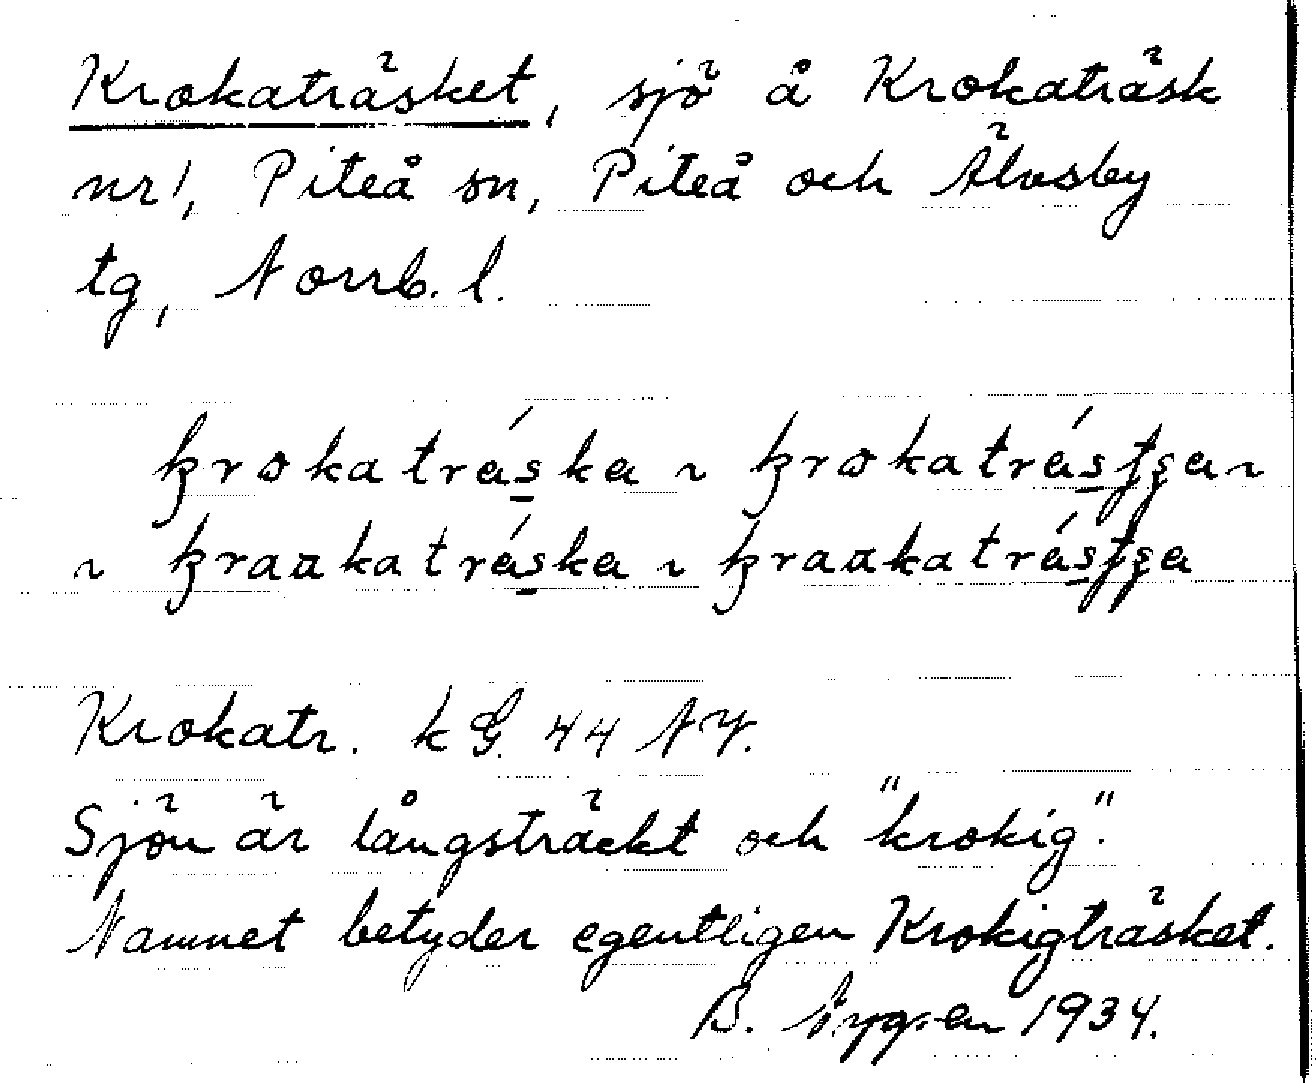 Krokaträsket, sjö å Krokaträsk
nr 1, Piteå sn, Piteå och Älvsby
tg, Norrb. l.
krokatráska ~ krokatrásʃʂa ~
~ kraakatráska ~ kraakatrásʃʂa
Krokatr. kG. 44 NV.
Sjön är långsträckt och "krokig".
Namnet betyder egentligen Krokigträsket.
B. Nygren 1934.